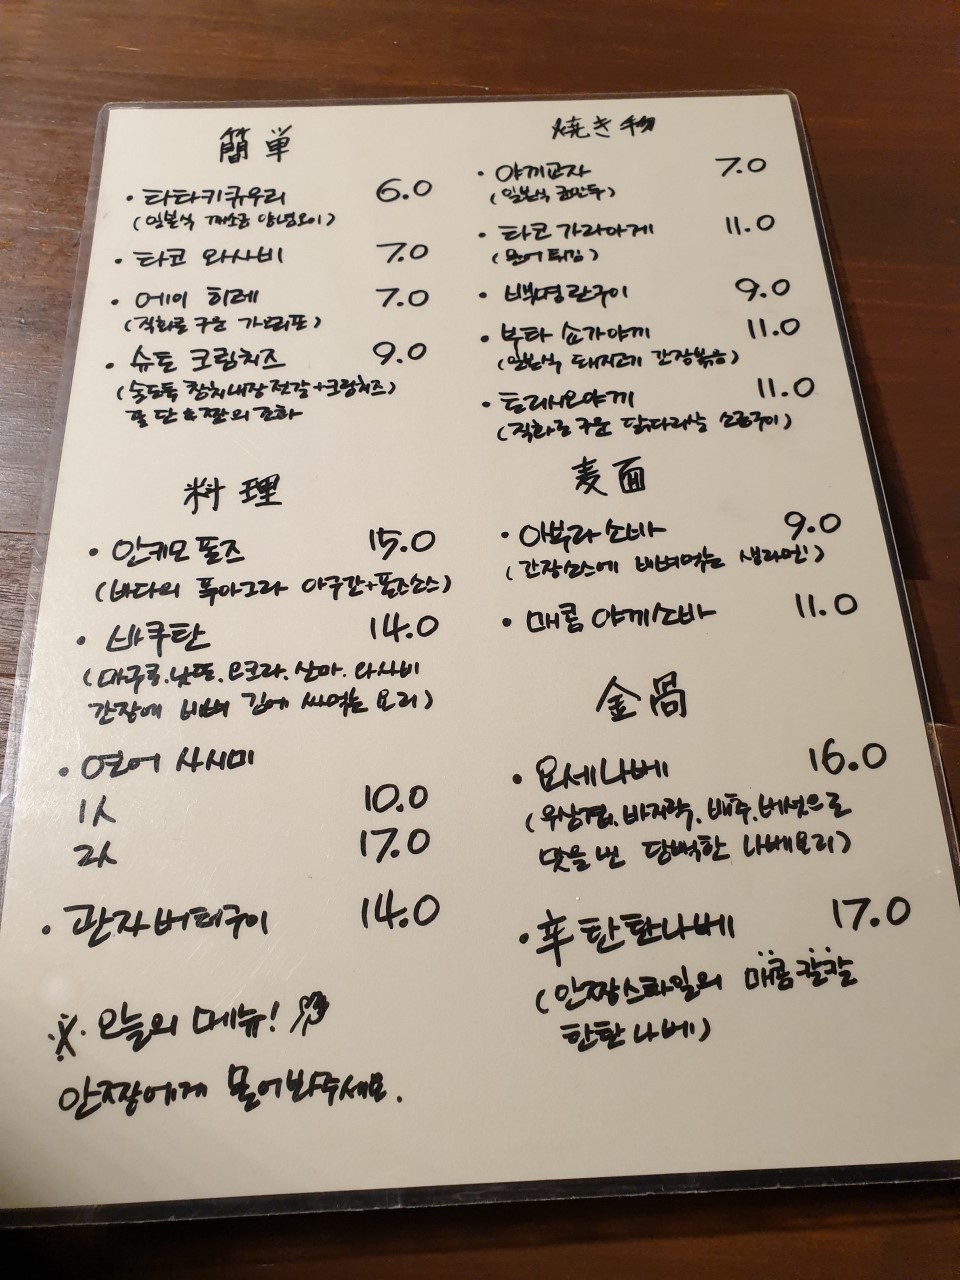 簡単
· 타타키큐우리 6.0
(일본식 깨소금 양념오이)
· 타코 와사비 7.0
· 에이 히레 7.0
(직화로 구운 가오리포)
· 슈토 크림치즈 9.0
(술도둑 참치내장젓갈+크림치즈)
단&짠의 조화
料理
· 안키모 폰즈 15.0
(바다의 푸아그라 아구간+폰즈소스)
· 바쿠탄 14.0
(마구로.낫또.오크라.산마.와사비
간장에 비벼 김에 싸먹는 요리)
· 연어 사시미
1人 10.0
2人 17.0
· 관자버터구이 14.0
※ 오늘의 메뉴!
안짱에게 물어봐주세요.
焼き物
· 야끼교자 7.0
(일본식 군만두)
· 타코 가라아게 11.0
(문어 튀김)
· 백명란구이 9.0
· 부타 쇼가야끼 11.0
(일본식 돼지고기 간장볶음)
· 토리시오야끼 11.0
(직화로 구운 닭다리살 소금구이)
麦面
· 아부라소바 9.0
(간장소스에 비벼먹는 생라멘!)
· 매콤 야끼소바 11.0
金鍋
· 요세나베 16.0
(우삼겹.바지락.배추.버섯으로
맛을 낸 담백한 나베요리)
· 辛탄탄나베 17.0
(안짱스타일의 매콤칼칼
탄탄나베)